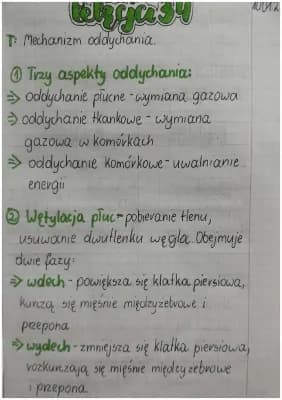 lekcja 34
T: Mechanizm oddychania.
① Trzy aspekty oddychania:
⇒ oddychanie płucne - wymiana gazowa
⇒ oddychanie tkankowe - wymiana
gazowa w komórkach
⇒ oddychanie komórkowe - uwalnianie
energii
② Wętylacja płuc - pobieranie tlenu,
usuwanie dwutlenku węgla. Obejmuje
dwie fazy:
⇒ wdech - powiększa się klatka piersiowa,
kurczą się mięśnie międzyżebrowe i
przepona
⇒ wydech - zmniejsza się klatka piersiowa,
rozkurczają się mięśnie międzyżebrowe
i przepona.